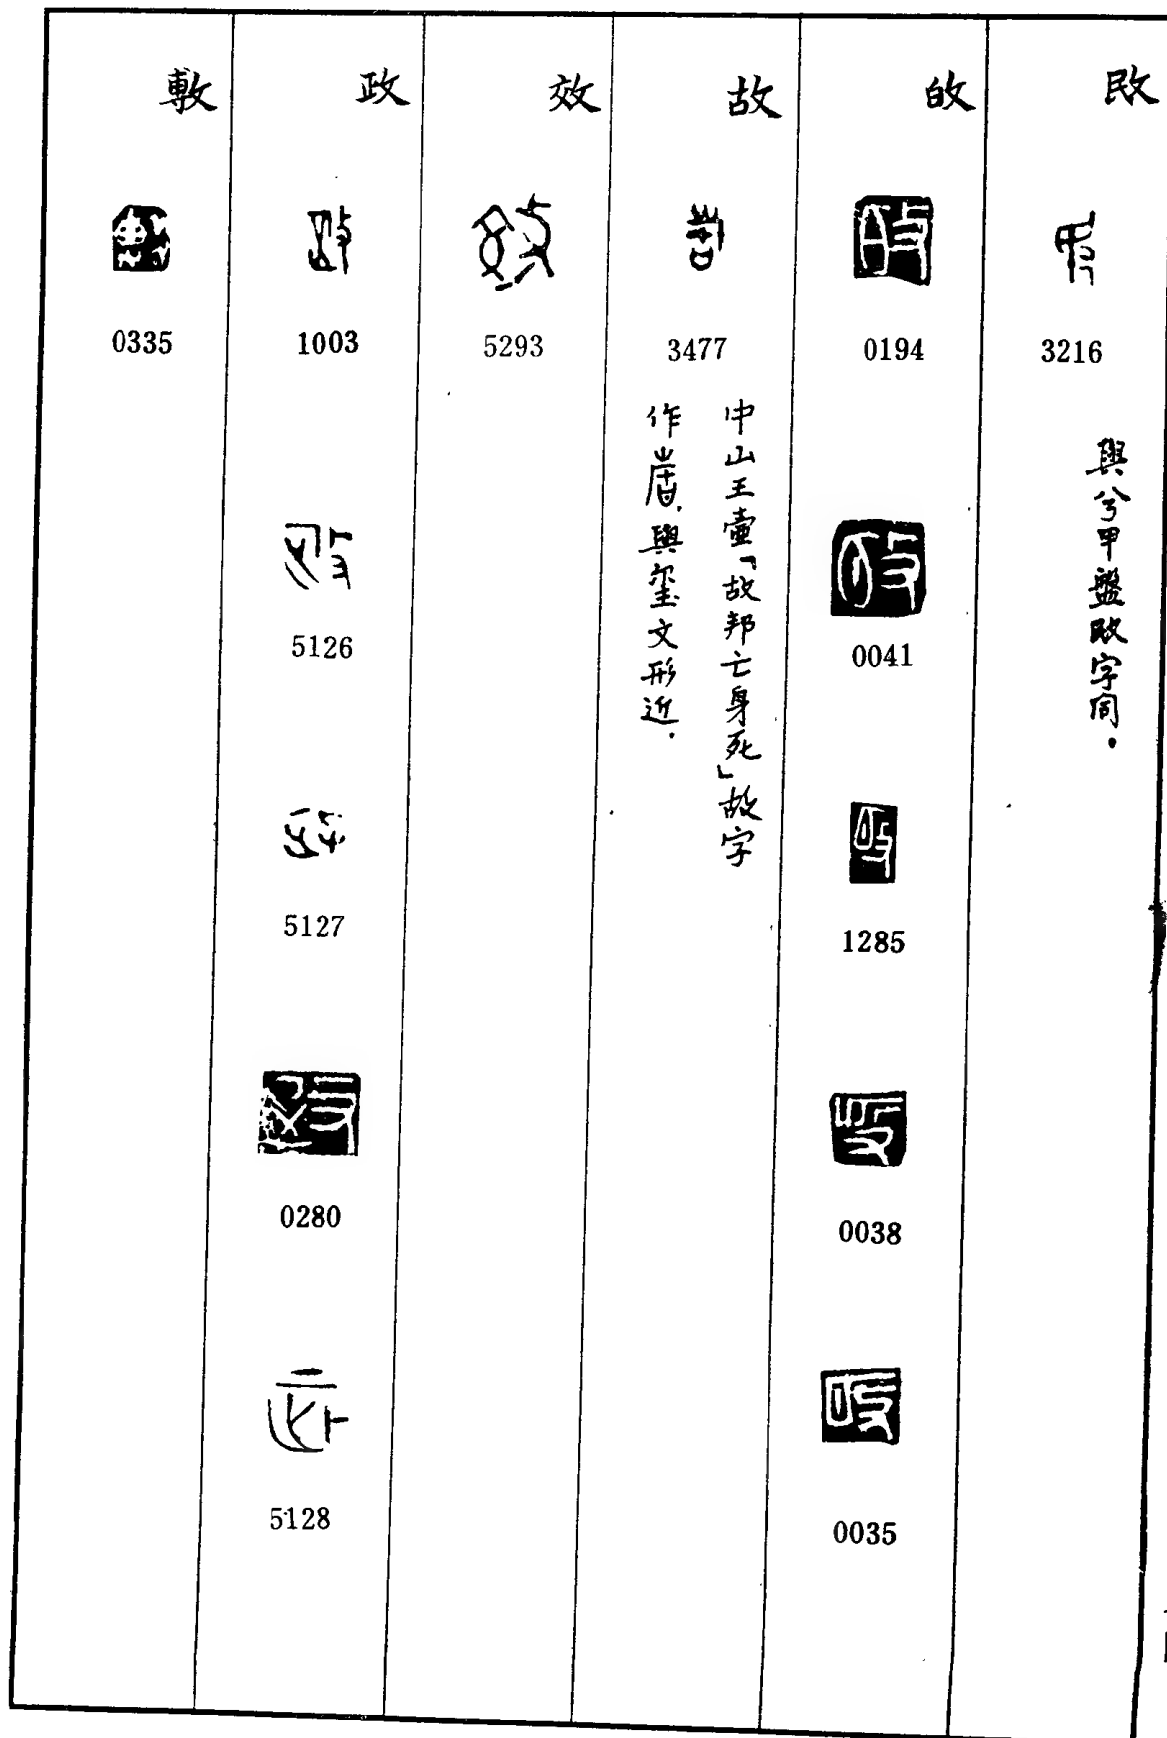 敃
3216
與兮甲盤敃字同.
敀
0194
0041
1285
0038
0035
故
3477
中山王壺「故邦亡身死」故字
作
與璽文形近.
效
5293
政
1003
5126
5127
0280
5128
敷
0335